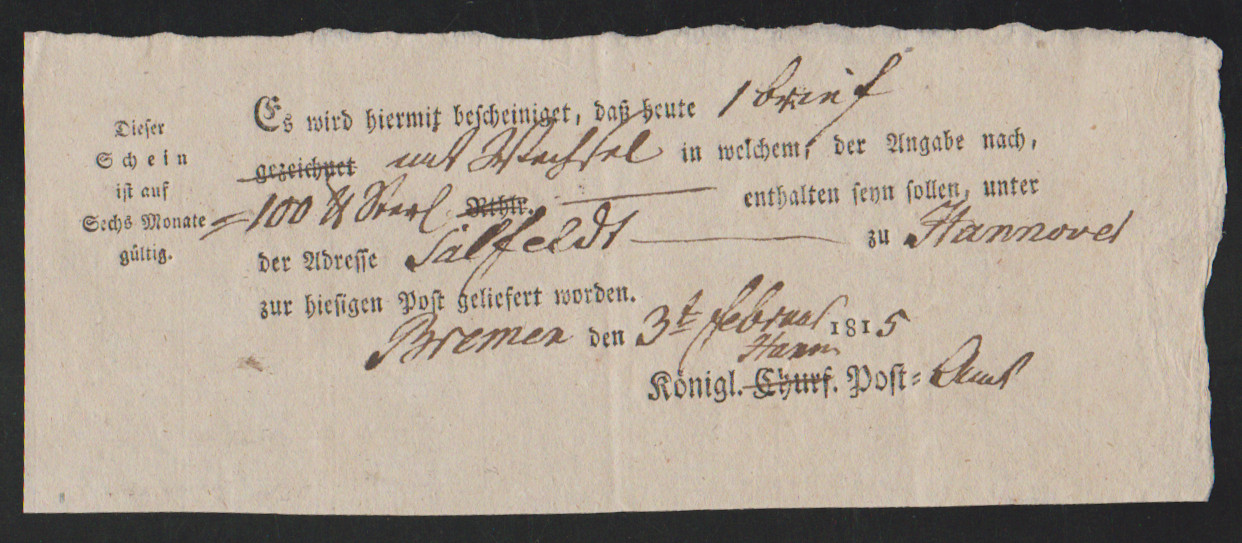 Dieser
Schein
ist auf
Sechs Monate
gültig.
Es wird hiermit bescheiniget, daß heute 1 brief
gezeichnet mit Wechsel in welchem, der Angabe nach,
100 ℔ Sterl Rthlr. enthalten seyn sollen, unter
der Adresse Salfeldt zu Hannover
zur hiesigen Post geliefert worden.
Bremen den 3t februar 1815
Hann
Königl. Churf. Post=Amt